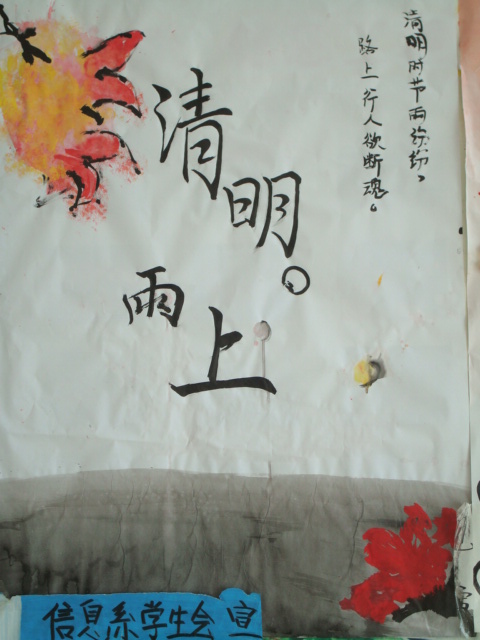 清明时节雨纷纷，
路上行人欲断魂。
清明。
雨上
信息系学生会 宣